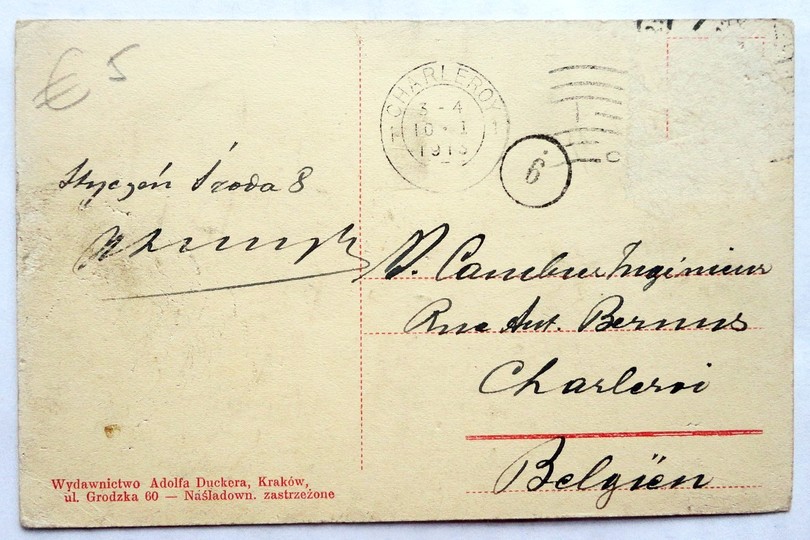 € 5
CHARLEROY
1 1
3-4
10-1
1913
6
Styczeń Środa 8
Ingénieur
Rue Ant. Bernus
Charleroi
Belgïen
Wydawnictwo Adolfa Duckera, Kraków,
ul. Grodzka 60 — Naśladown. zastrzeżone